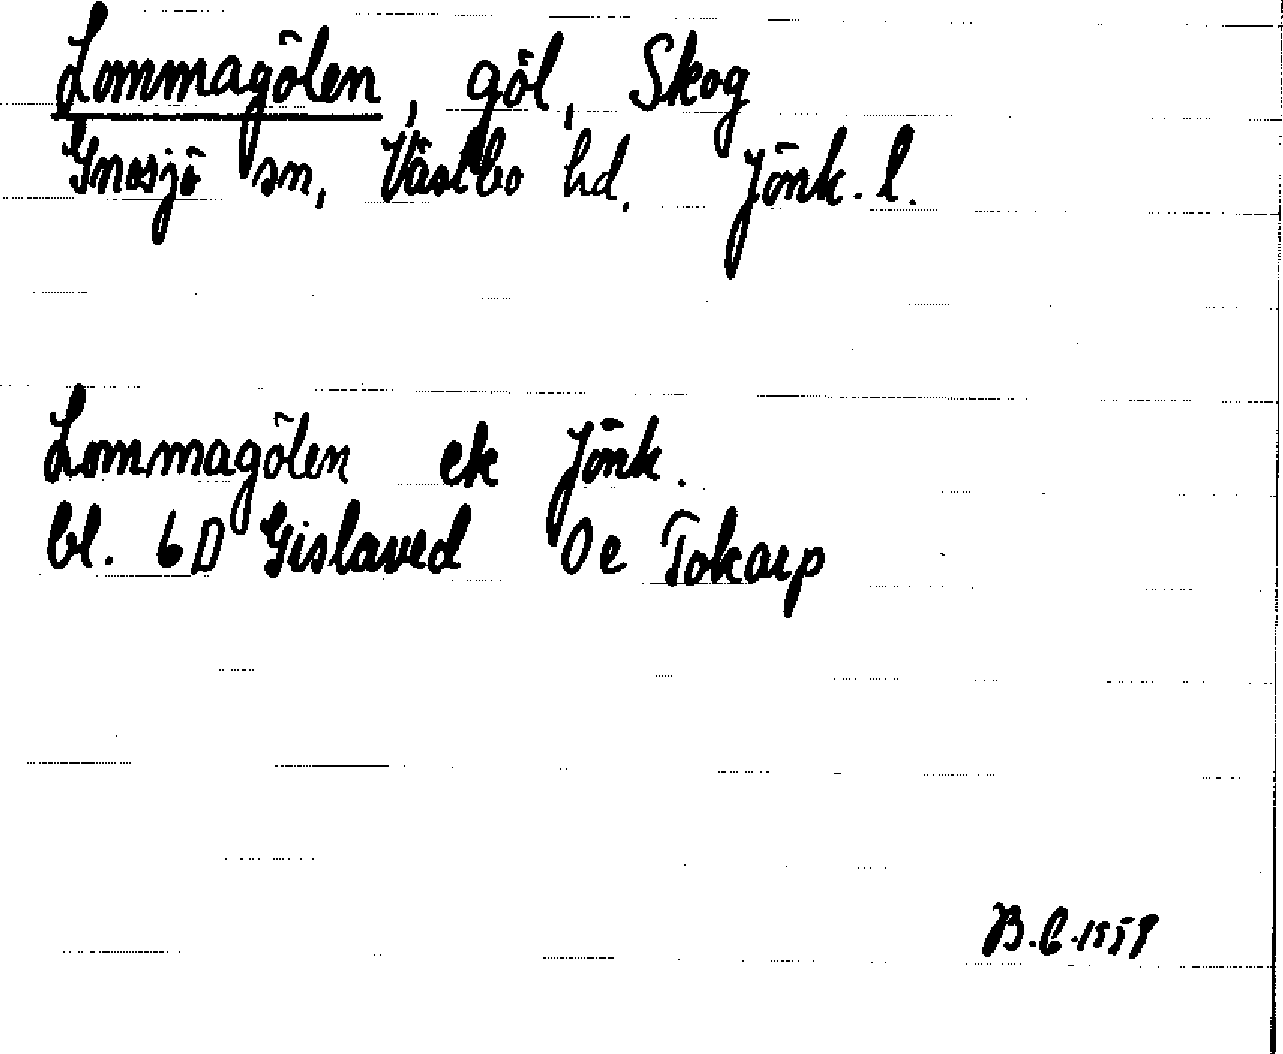 Lommagölen, göl, Skog
Gnosjö sn, Västbo hd. Jönk. l.
Lommagölen ek Jönk.
bl. 6D Gislaved 0e Tokarp